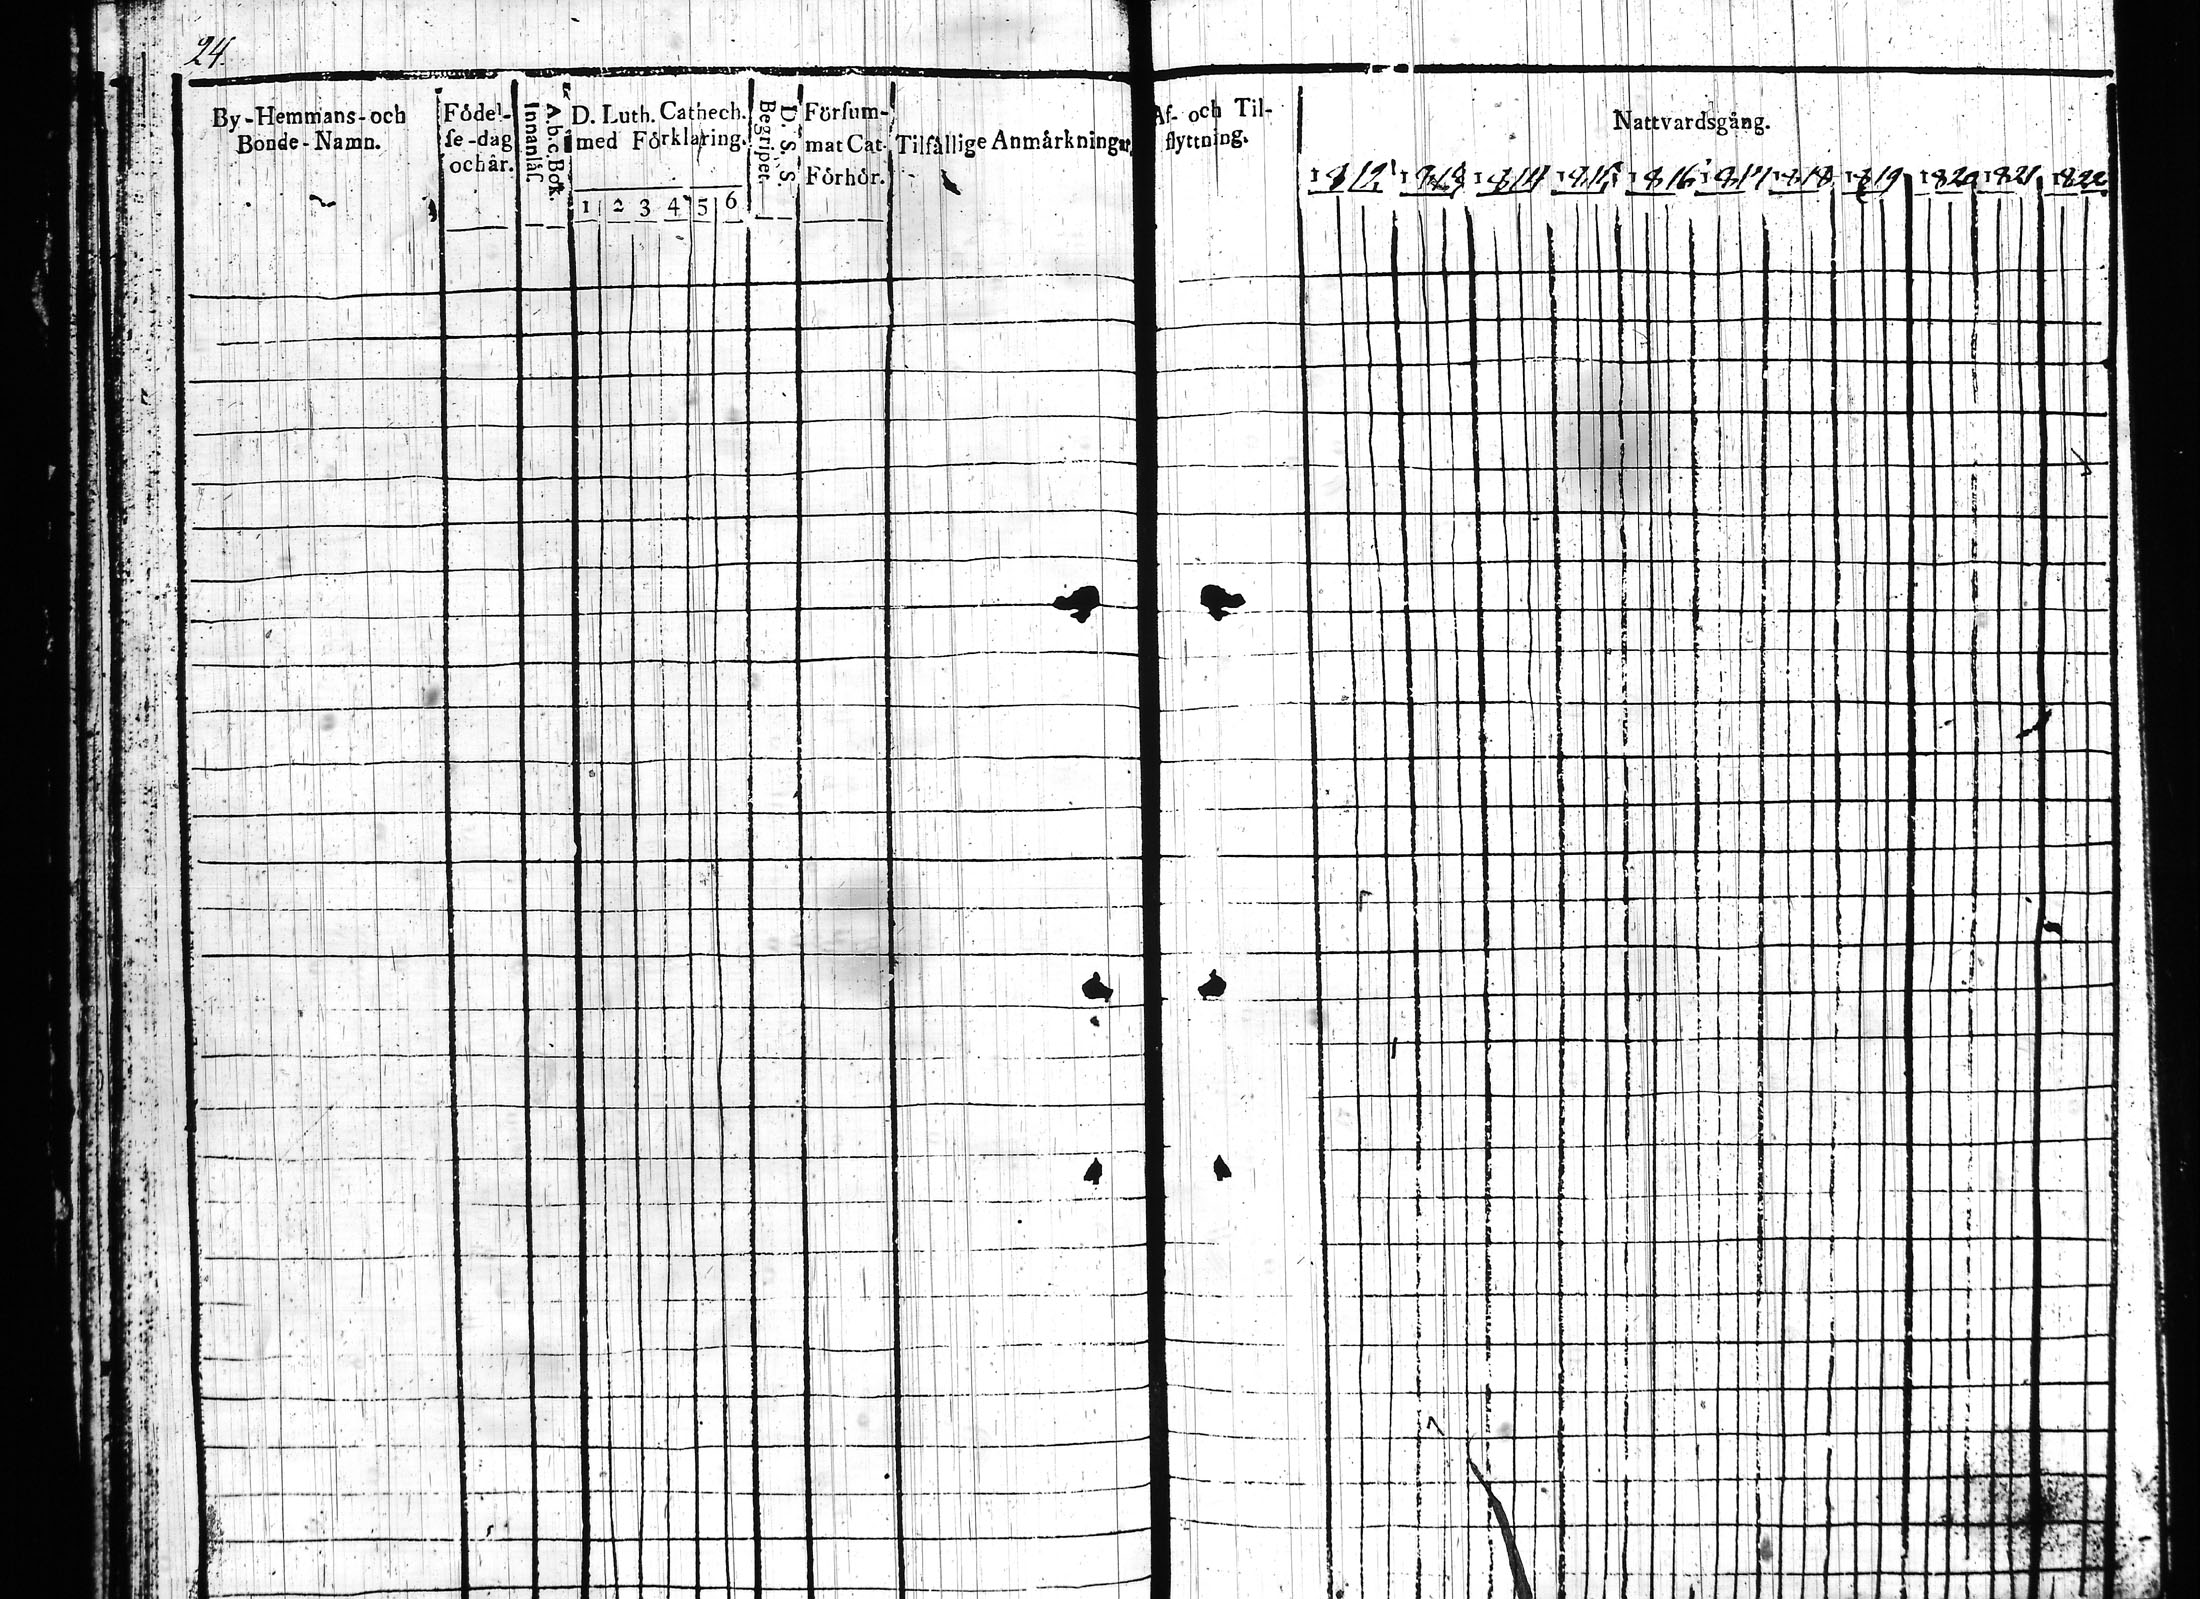 24.
By-Hemmans-och
Bonde-Namn.
Födel-
ſe-dag
och år.
A.b.c.Bok.
Innanläſ.
D. Luth. Cathech.
med Förklaring.
1 2 3 4 5 6
D. S. S.
Begriper.
Förſum-
mat Cat.
Förhör.
Tilfällige Anmärkningar
Af- och Til-
flyttning.
Nattvardsgång.
1812. 1813 1814 1815 1816 1817 1818 1819 1820 1821 1822